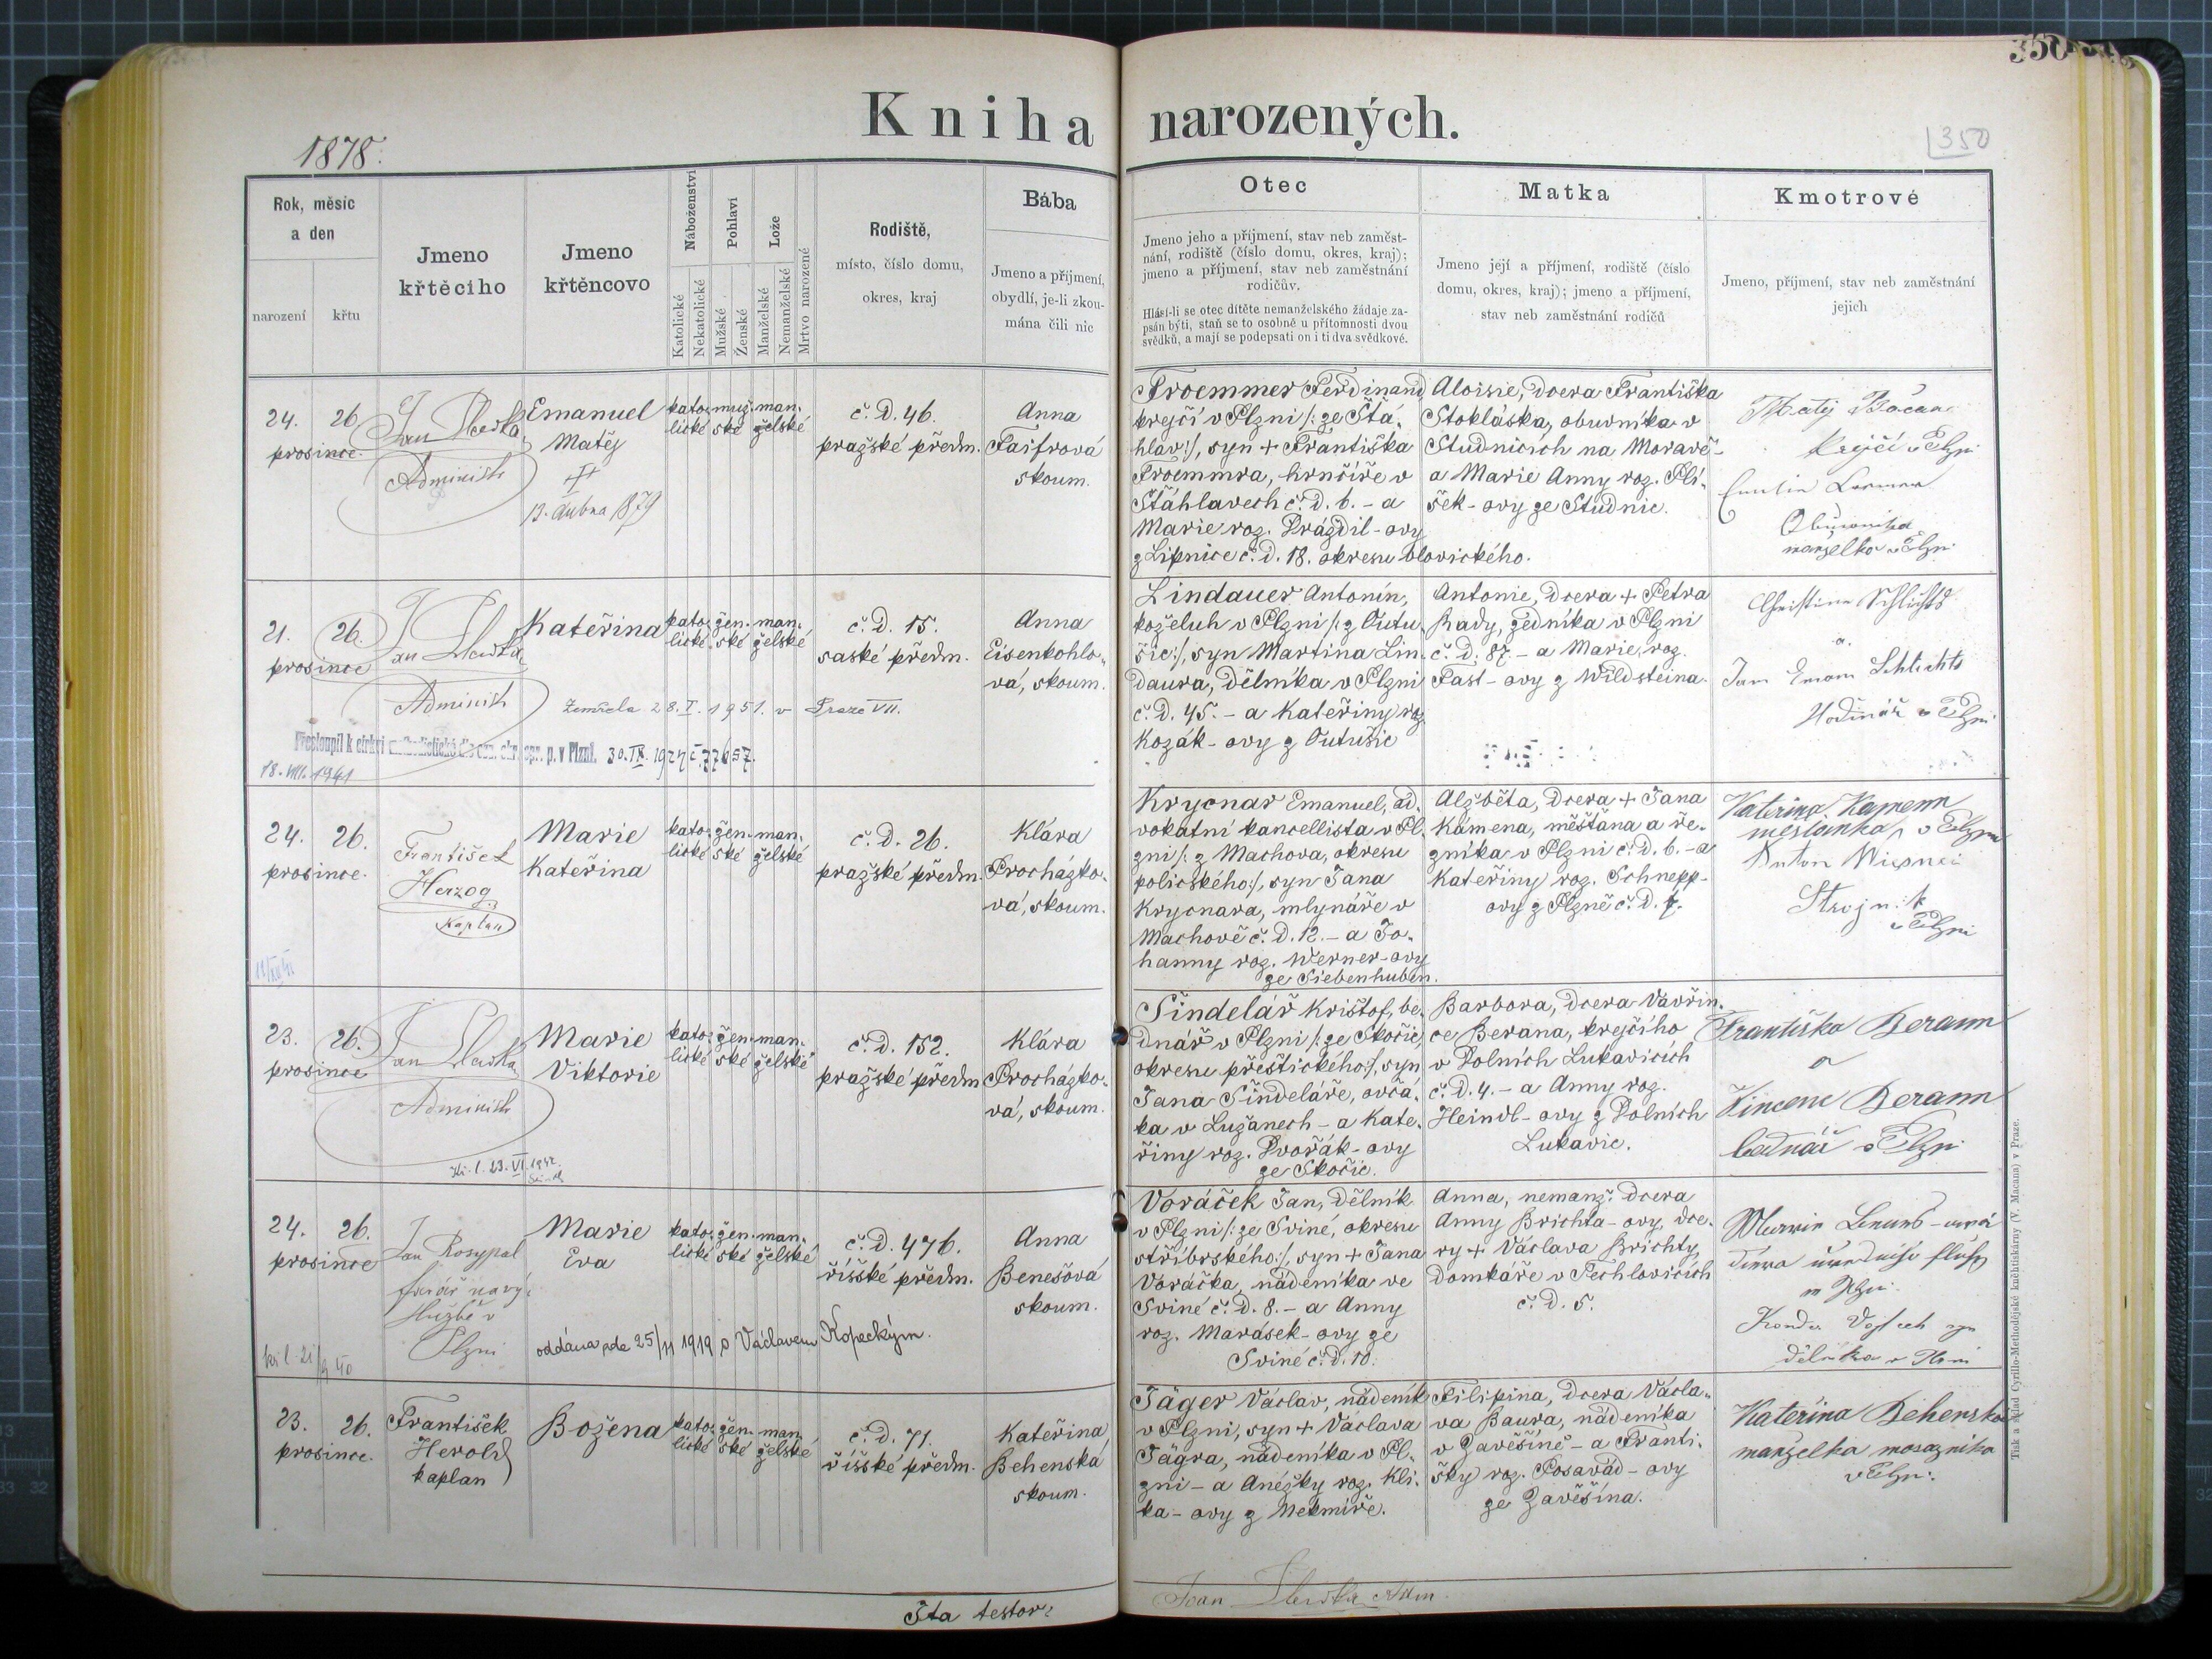 350
Kniha narozených.
1878.
350
Rok, měsíc
a den
narození
křtu
Jmeno
křtěcího
Jmeno
křtěncovo
Náboženství
Katolické
Nekatolické
Pohlaví
Mužské
Ženské
Lože
Manželské
Nemanželské
Mrtvo narozené
Rodiště,
místo, číslo domu,
okres, kraj
Bába
Jmeno a příjmení,
obydlí, je-li zkou-
mána čili nic
Otec
Jmeno jeho a příjmení, stav neb zaměst-
nání, rodiště (číslo domu, okres, kraj);
jmeno a příjmení, stav neb zaměstnání
rodičův.
Hlásí-li se otec dítěte nemanželského žádaje za-
psán býti, staň se to osobně u přítomnosti dvou
svědků, a mají se podepsati on i ti dva svědkové.
Matka
Jmeno její a příjmení, rodiště (číslo
domu, okres, kraj); jmeno a příjmení,
stav neb zaměstnání rodičů
Kmotrové
Jmeno, příjmení, stav neb zaměstnání
jejich
24. 26.
prosince
Jan
Administ
Emanuel
Matěj
13. dubna 1879
kato-
lické
muž-
ské
man-
želské
č. d. 46.
pražské předm.
Anna
Faifrová
skoum.
Froemmer Ferdinand,
krejčí v Plzni /: ze Štá-
hlav :/, syn + Františka
Froemmra, hrnčíře v
Štáhlavech č. d. 6. - a
Marie roz. Prázdil-ovy
z Lipnice č. d. 18. okresu blovického.
Aloisie, dcera Františka
Stokláska, obuvníka v
Studnicích na Moravě-
a Marie Anny roz. Pli-
šek-ovy ze Studnic.
Matěj
Krejčí v Plzni
manželka v Plzni
21. 26.
prosince
Jan
Administ
Kateřina
kato-
lické
žen-
ské
man-
želské
č. d. 15.
saské předm.
Anna
Eisenkohlo-
vá, skoum.
Zemřela 28. I. 1951. v Praze VII.
Přestoupil k církvi
p. v Plzni. 30. IX. 1927
18. VIII. 1941
Lindauer Antonín,
koželuh v Plzni /: z Outu-
šic :/, syn Martina Lin-
daura, dělníka v Plzni
č. d. 45. - a Kateřiny roz.
Kozák-ovy z Outušic
Antonie, dcera + Petra
Rady, zedníka v Plzni
č. d. 87. - a Marie, roz.
Fast-ovy z Wildsteina.
Christine Schlichts
a
Jan Schlichts
Hodinář v Plzni
24. 26.
prosince.
František
Herzog
Kaplan
Marie
Kateřina
kato-
lické
žen-
ské
man-
želské
č. d. 26.
pražské předm.
Klára
Procházko-
vá, skoum.
Krycnar Emanuel, ad-
vokátní kancellista v Pl-
zni /: z Machova, okresu
polického :/, syn Jana
Krycnara, mlynáře v
Machově č. d. 12. - a Jo-
hanny roz. Werner-ovy
ze Siebenhuben.
Alžběta, dcera + Jana
Kámena, měšťana a ře-
zníka v Plzni č. d. 6. - a
Kateřiny roz. Schnepp-
ovy z Plzně č. d. 7.
Kateřina Kamenn
měšťanka v Plzni
Anton Wiesner
Strojník
v Plzni
23. 26.
prosince
Jan
Administ
Marie
Viktorie
kato-
lické
žen-
ské
man-
želské
č. d. 152.
pražské předm
Klára
Procházko-
vá, skoum.
Kř. l. 23. VI. 1942.
Šindelář Krištof, be-
dnář v Plzni /: ze Skočic,
okresu přeštického :/, syn
Jana Šindeláře, ovčá-
ka v Lužanech - a Kate-
řiny roz. Dvořák-ovy
ze Skočic.
Barbora, dcera Vavřin-
ce Berana, krejčího
v Dolních Lukavicích
č. d. 4. - a Anny roz.
Heindl-ovy z Dolních
Lukavic.
Františka Berann
a
Vincenc Berann
bednář v Plzni
24. 26.
prosince
Jan Rosypal
farář na vý-
službě v
Plzni
Marie
Eva
kato-
lické
žen-
ské
man-
želské
č. d. 476.
říšské předm.
Anna
Benešová
skoum.
kř. l. 21/9 40
oddána zde 25/11 1919 s Václavem Kopeckým.
Voráček Jan, dělník
v Plzni /: ze Sviné, okresu
stříbrského :/, syn + Jana
Voráčka, nádeníka ve
Sviné č. d. 8. - a Anny
roz. Marásek-ovy ze
Sviné č. d. 10.
Anna, nemanž. dcera
Anny Brichta-ovy, dce-
ry + Václava Brichty,
domkáře v Techlovicích
č. d. 5.
dělníka v Plzni
23. 26.
prosince.
František
Herold
kaplan
Božena
kato-
lické
žen-
ské
man-
želské
č. d. 71.
říšské předm.
Kateřina
Behenská
skoum.
Jäger Václav, nádeník
v Plzni, syn + Václava
Jägra, nádeníka v Pl-
zni - a Anežky roz. Kli-
ka-ovy z Nekmíře.
Filipina, dcera Václa-
va Baura, nádeníka
v Zavěšíně - a Franti-
šky roz. Posavád-ovy
ze Zavěšína.
Kateřina Behenska
manželka mosazníka
v Plzni.
Ita testor:
Joan Adm.
Tisk a sklad Cyrillo-Methodějské knihtiskárny (V. Macana) v Praze.